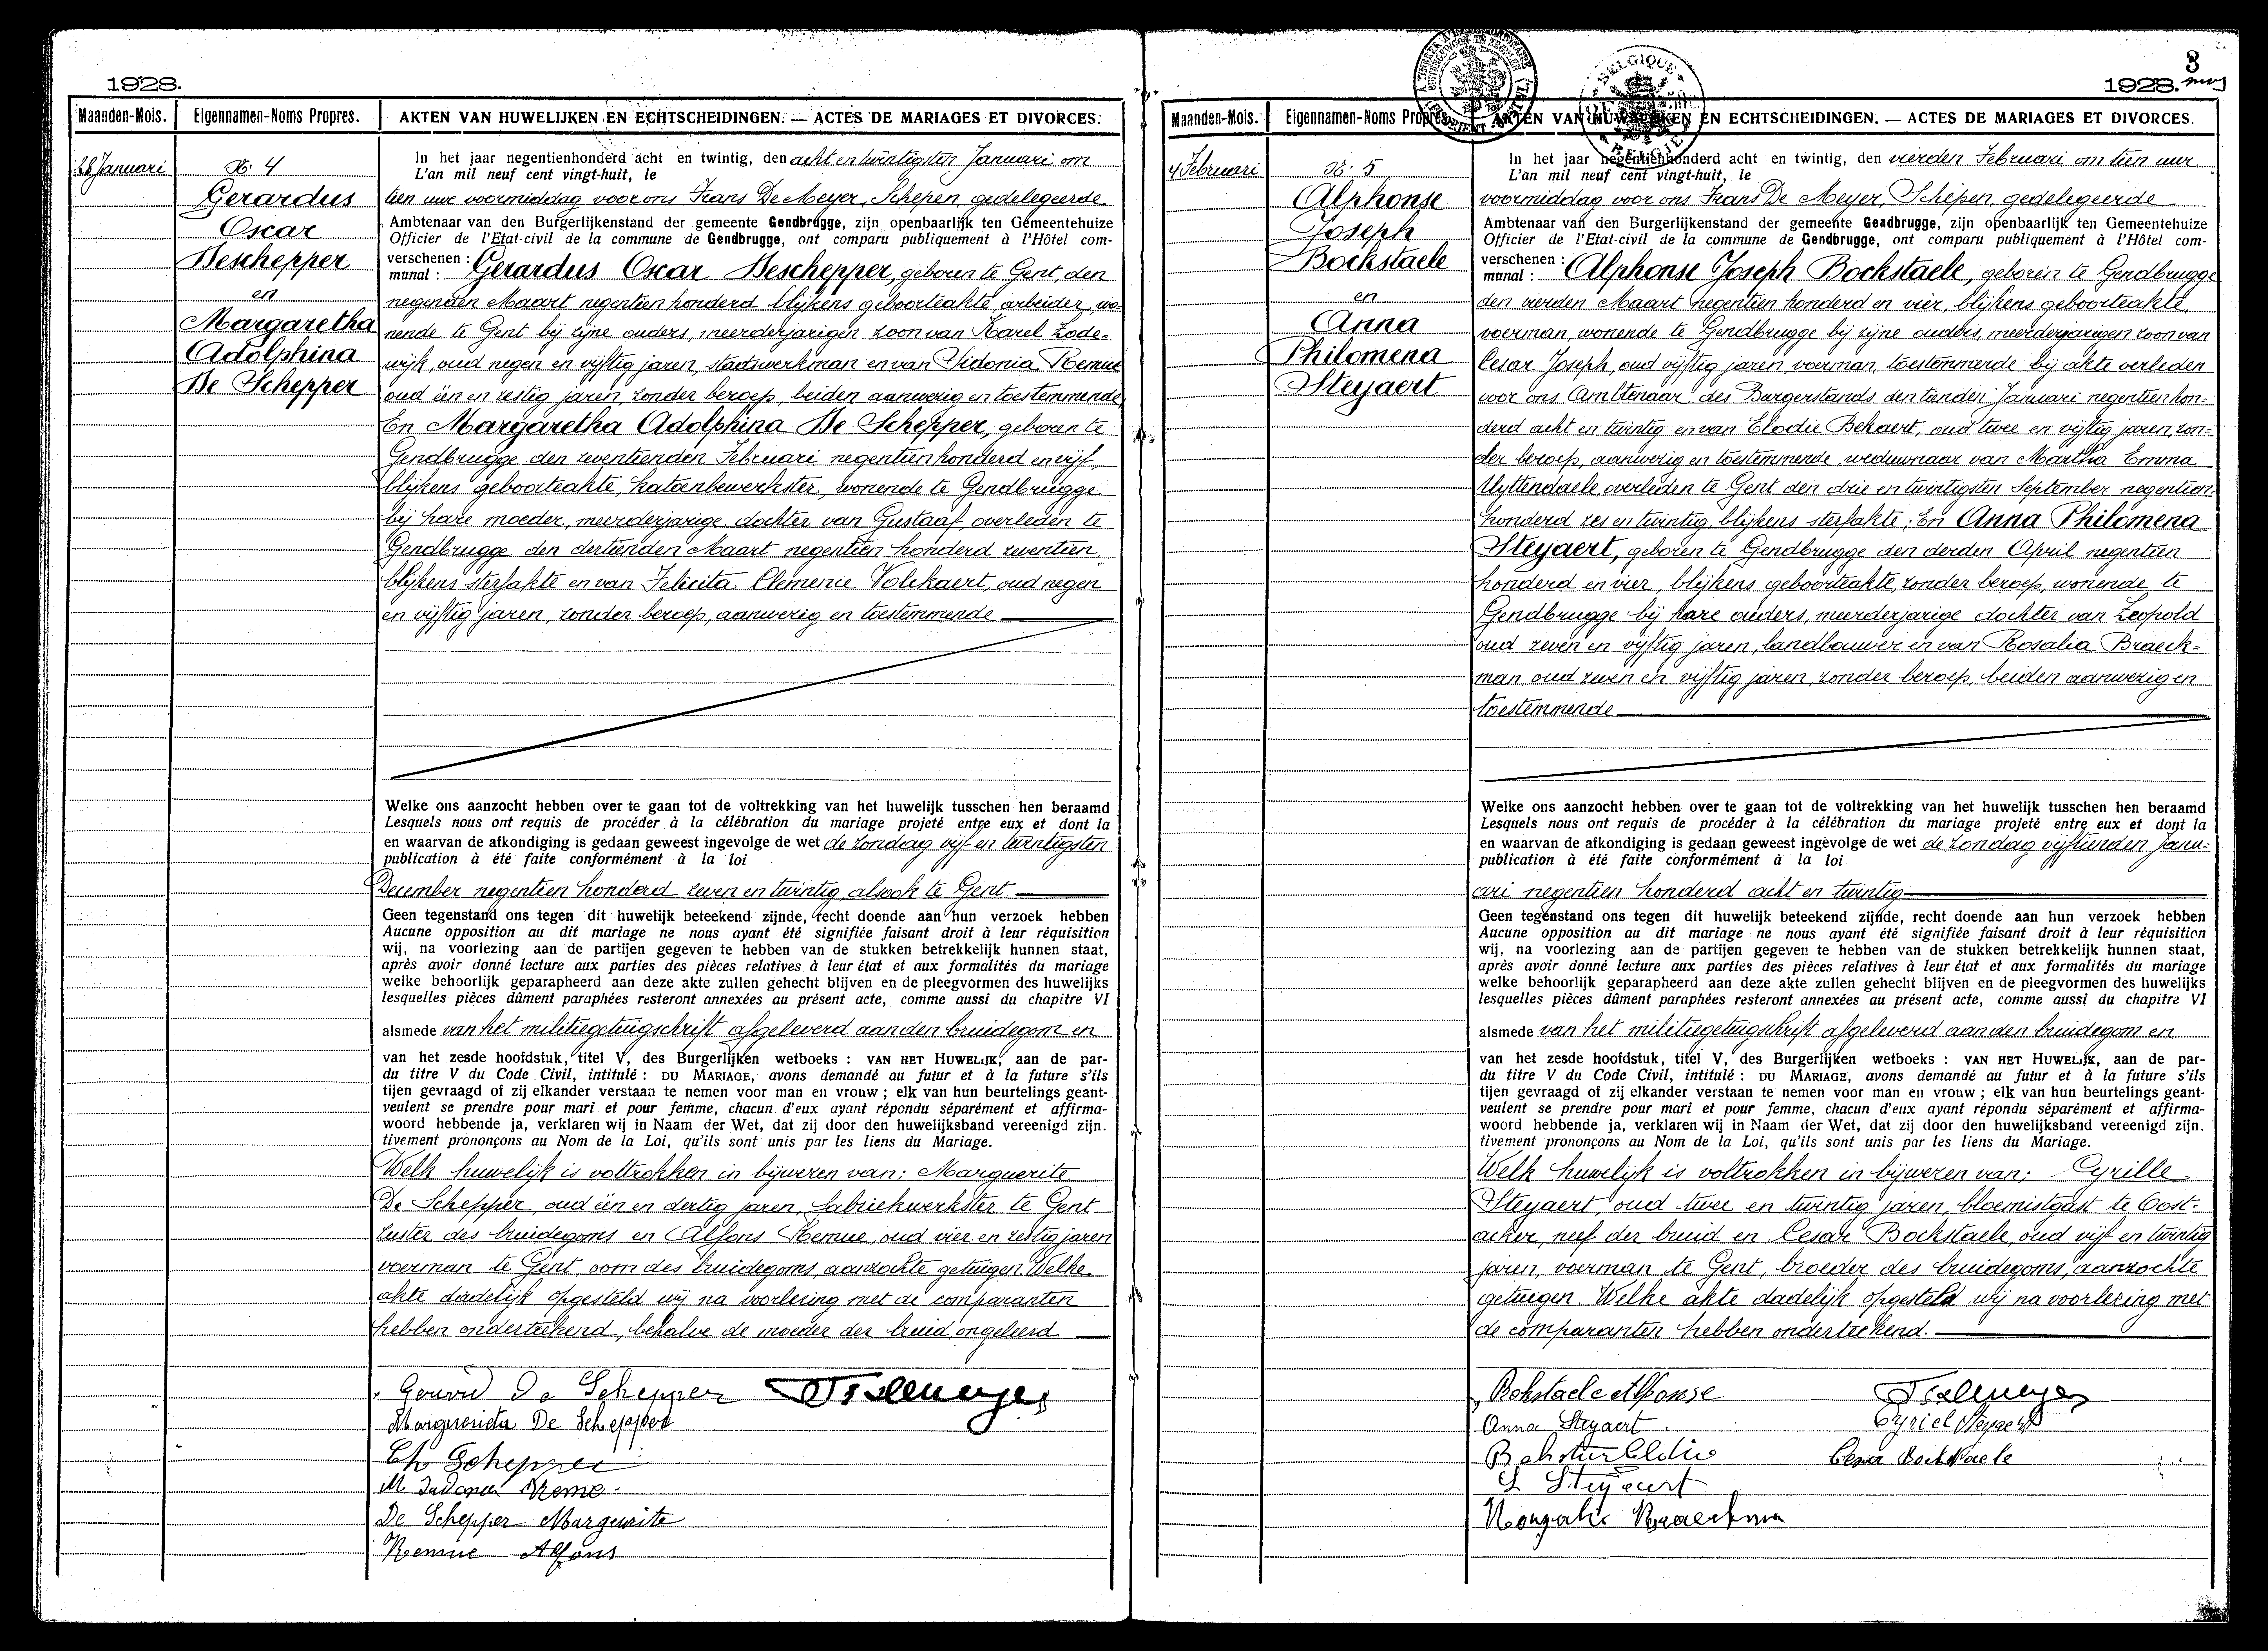 1928.
Maanden-Mois. Eigennamen-Noms Propres. AKTEN VAN HUWELIJKEN EN ECHTSCHEIDINGEN. — ACTES DE MARIAGES ET DIVORCES.
28 Januari
N: 4
Gerardus
Oscar
Deschepper
en
Margaretha
Adolphina
De Schepper
In het jaar negentienhonderd acht en twintig, den acht en twintigsten Januari om
L'an mil neuf cent vingt-huit, le
tien ure voormiddag voor ons Frans De Meyer, Schepen, gedelegeerde
Ambtenaar van den Burgerlijkenstand der gemeente Gendbrugge, zijn openbaarlijk ten Gemeentehuize
Officier de l'Etat-civil de la commune de Gendbrugge, ont comparu publiquement à l'Hôtel com-
verschenen : Gerardus Oscar Deschepper, geboren te Gent, den
munal :
negenden Maart negentien honderd blijkens geboorteakte, arbeider, wo-
nende te Gent bij zijne ouders, meerderjarigen zoon van Karel Lode-
wijk, oud negen en vijftig jaren, stadswerkman en van Sidonia Remue
oud één en zestig jaren, zonder beroep, beiden aanwezig en toestemmende,
En Margaretha Adolphina De Schepper, geboren te
Gendbrugge den zeventienden Februari negentien honderd en vijf,
blijkens geboorteakte, katoenbewerkster, wonende te Gendbrugge
bij hare moeder, meerderjarige dochter van Gustaaf, overleden te
Gendbrugge den dertienden Maart negentien honderd zeventien,
blijkens sterfakte en van Felicita Clemence Volckaert, oud negen
en vijftig jaren, zonder beroep, aanwezig en toestemmende
Welke ons aanzocht hebben over te gaan tot de voltrekking van het huwelijk tusschen hen beraamd
Lesquels nous ont requis de procéder à la célébration du mariage projeté entre eux et dont la
en waarvan de afkondiging is gedaan geweest ingevolge de wet de zondag vijf en twintigsten
publication à été faite conformément à la loi
December negentien honderd zeven en twintig, alsook te Gent
Geen tegenstand ons tegen dit huwelijk beteekend zijnde, recht doende aan hun verzoek hebben
Aucune opposition au dit mariage ne nous ayant été signifiée faisant droit à leur réquisition
wij, na voorlezing aan de partijen gegeven te hebben van de stukken betrekkelijk hunnen staat,
après avoir donné lecture aux parties des pièces relatives à leur état et aux formalités du mariage
welke behoorlijk geparapheerd aan deze akte zullen gehecht blijven en de pleegvormen des huwelijks
lesquelles pièces dûment paraphées resteront annexées au présent acte, comme aussi du chapitre VI
alsmede van het militiegetuigschrift afgeleverd aan den bruidegom en
van het zesde hoofdstuk, titel V, des Burgerlijken wetboeks : VAN HET HUWELIJK, aan de par-
du titre V du Code Civil, intitulé : DU MARIAGE, avons demandé au futur et à la future s'ils
tijen gevraagd of zij elkander verstaan te nemen voor man en vrouw ; elk van hun beurtelings geant-
veulent se prendre pour mari et pour femme, chacun d'eux ayant répondu séparément et affirma-
woord hebbende ja, verklaren wij in Naam der Wet, dat zij door den huwelijksband vereenigd zijn.
tivement prononçons au Nom de la Loi, qu'ils sont unis par les liens du Mariage.
Welk huwelijk is voltrokken in bijwezen van: Marguerite
De Schepper, oud één en dertig jaren, fabriekwerkster te Gent
zuster des bruidegoms en Alfons Remue, oud vier en zestig jaren
voerman te Gent, oom des bruidegoms, aanzochte getuigen. Welke
akte dadelijk opgesteld wij na voorlezing met de comparanten
hebben onderteekend, behalve de moeder der bruid ongeleerd
De Schepper
De Schepper
Schepper
De Schepper Margerite
Remue Alfons
3
1928.
Maanden-Mois. Eigennamen-Noms AKTEN VAN HUWELIJKEN EN ECHTSCHEIDINGEN. — ACTES DE MARIAGES ET DIVORCES.
BELGIQUE
BELGIË
4 Februari
N: 5
Alphonse
Joseph
Bockstaele
en
Anna
Philomena
Steyaert
In het jaar negentienhonderd acht en twintig, den vierden Februari om tien uur
L'an mil neuf cent vingt-huit, le
voormiddag voor ons Frans De Meyer, Schepen, gedelegeerde
Ambtenaar van den Burgerlijkenstand der gemeente Gendbrugge, zijn openbaarlijk ten Gemeentehuize
Officier de l'Etat-civil de la commune de Gendbrugge, ont comparu publiquement à l'Hôtel com-
verschenen : Alphonse Joseph Bockstaele, geboren te Gendbrugge
munal :
den vierden Maart negentien honderd en vier, blijkens geboorteakte,
voerman, wonende te Gendbrugge bij zijne ouders, meerderjarigen zoon van
Cesar Joseph, oud vijftig jaren voerman, toestemmende bij akte verleden
voor ons Ambtenaar des Burgerstands den tienden Januari negentien hon-
derd acht en twintig en van Elodie Bekaert, oud twee en vijftig jaren, zon-
der beroep, aanwezig en toestemmende, weduwnaar van Martha Emma
Uyttendaele, overleden te Gent den drie en twintigsten September negentien
honderd zes en twintig, blijkens sterfakte; En Anna Philomena
Steyaert, geboren te Gendbrugge den derden April negentien
honderd en vier, blijkens geboorteakte, zonder beroep, wonende te
Gendbrugge bij hare ouders, meerderjarige dochter van Leopold
oud zeven en vijftig jaren, landbouwer en van Rosalia Braeck-
man, oud zeven en vijftig jaren, zonder beroep, beiden aanwezig en
toestemmende
Welke ons aanzocht hebben over te gaan tot de voltrekking van het huwelijk tusschen hen beraamd
Lesquels nous ont requis de procéder à la célébration du mariage projeté entre eux et dont la
en waarvan de afkondiging is gedaan geweest ingevolge de wet de zondag vijftienden Janu-
publication à été faite conformément à la loi
ari negentien honderd acht en twintig
Geen tegenstand ons tegen dit huwelijk beteekend zijnde, recht doende aan hun verzoek hebben
Aucune opposition au dit mariage ne nous ayant été signifiée faisant droit à leur réquisition
wij, na voorlezing aan de partijen gegeven te hebben van de stukken betrekkelijk hunnen staat,
après avoir donné lecture aux parties des pièces relatives à leur état et aux formalités du mariage
welke behoorlijk geparapheerd aan deze akte zullen gehecht blijven en de pleegvormen des huwelijks
lesquelles pièces dûment paraphées resteront annexées au présent acte, comme aussi du chapitre VI
alsmede van het militiegetuigschrift afgeleverd aan den bruidegom en
van het zesde hoofdstuk, titel V, des Burgerlijken wetboeks : VAN HET HUWELIJK, aan de par-
du titre V du Code Civil, intitulé : DU MARIAGE, avons demandé au futur et à la future s'ils
tijen gevraagd of zij elkander verstaan te nemen voor man en vrouw ; elk van hun beurtelings geant-
veulent se prendre pour mari et pour femme, chacun d'eux ayant répondu séparément et affirma-
woord hebbende ja, verklaren wij in Naam der Wet, dat zij door den huwelijksband vereenigd zijn.
tivement prononçons au Nom de la Loi, qu'ils sont unis par les liens du Mariage.
Welk huwelijk is voltrokken in bijwezen van: Cyrille
Steyaert, oud twee en twintig jaren, bloemistgast te Oost-
acker, neef der bruid en Cesar Bockstaele, oud vijf en twintig
jaren, voerman te Gent, broeder des bruidegoms, aanzochte
getuigen. Welke akte dadelijk opgesteld wij na voorlezing met
de comparanten hebben onderteekend.
Bokstaele Alfonse
Anna Steyaert Cyriel Steyaert
Cesar Bockstaele